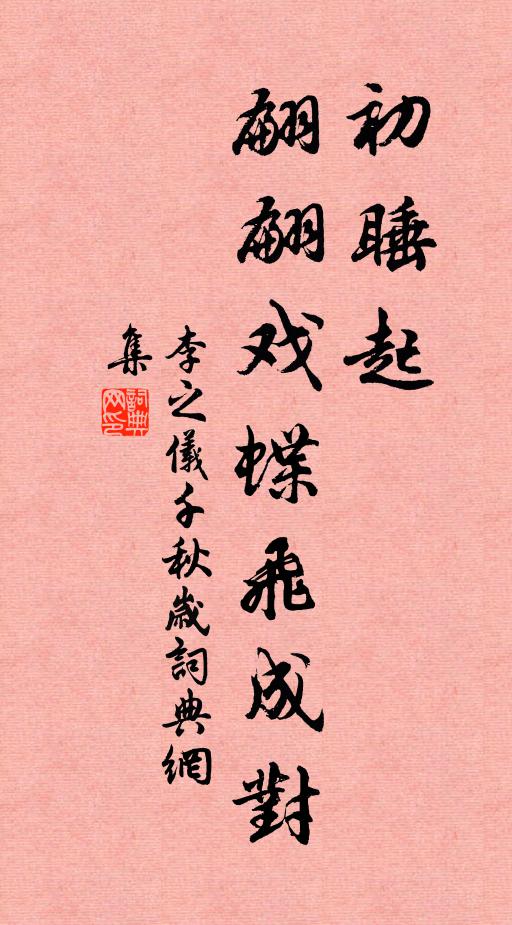 初睡起
翩翩戏蝶飛成對
李之儀千秋歲詞典網
集
詞典
网印